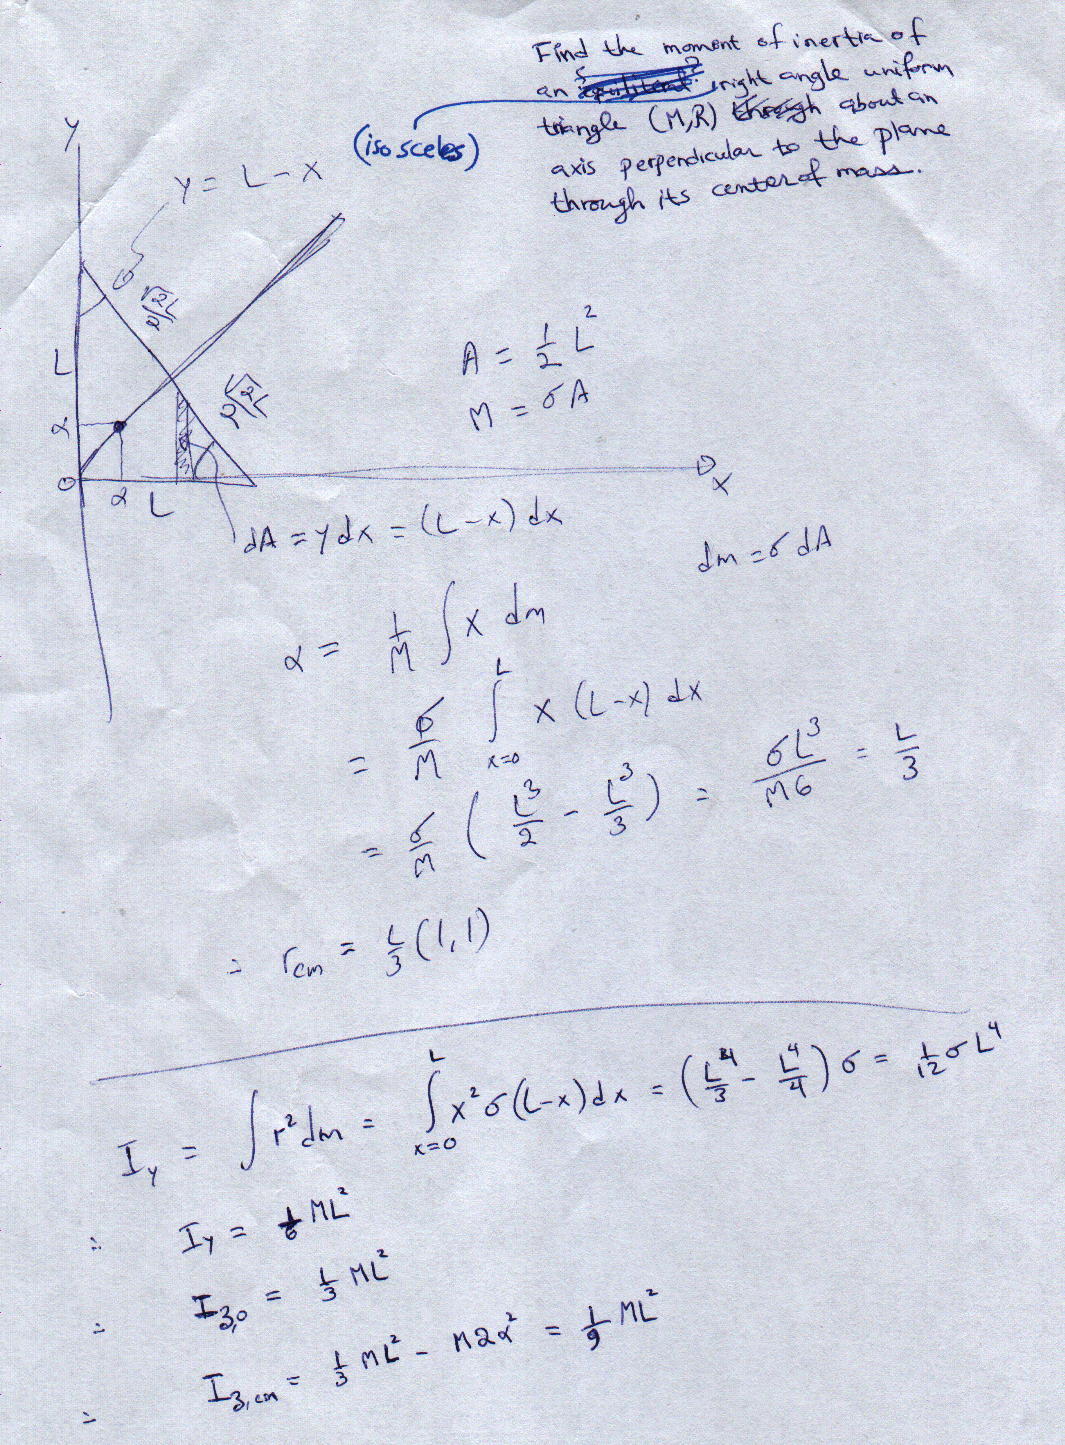 Find the moment of inertia of
an right angle uniform
(isosceles)
triangle (M,R) through about an
axis perpendicular to the plane
through its center of mass.
y
y = L - x
√2L/2
√2L/2
L
α
O
α
L
x
A = 1/2 L²
M = σA
dA = y dx = (L-x) dx
dm = σ dA
α = 1/M ∫ x dm
= σ/M ∫_{x=0}^{L} x (L-x) dx
= σ/M ( L³/2 - L³/3 ) = σL³/M6 = L/3
∴ r_cm = L/3 (1,1)
I_y = ∫ r² dm = ∫_{x=0}^{L} x² σ(L-x) dx = ( L⁴/3 - L⁴/4 ) σ = 1/12 σ L⁴
∴ I_y = 1/6 ML²
∴ I_{3,0} = 1/3 ML²
∴ I_{3,cm} = 1/3 ML² - M2α² = 1/9 ML²